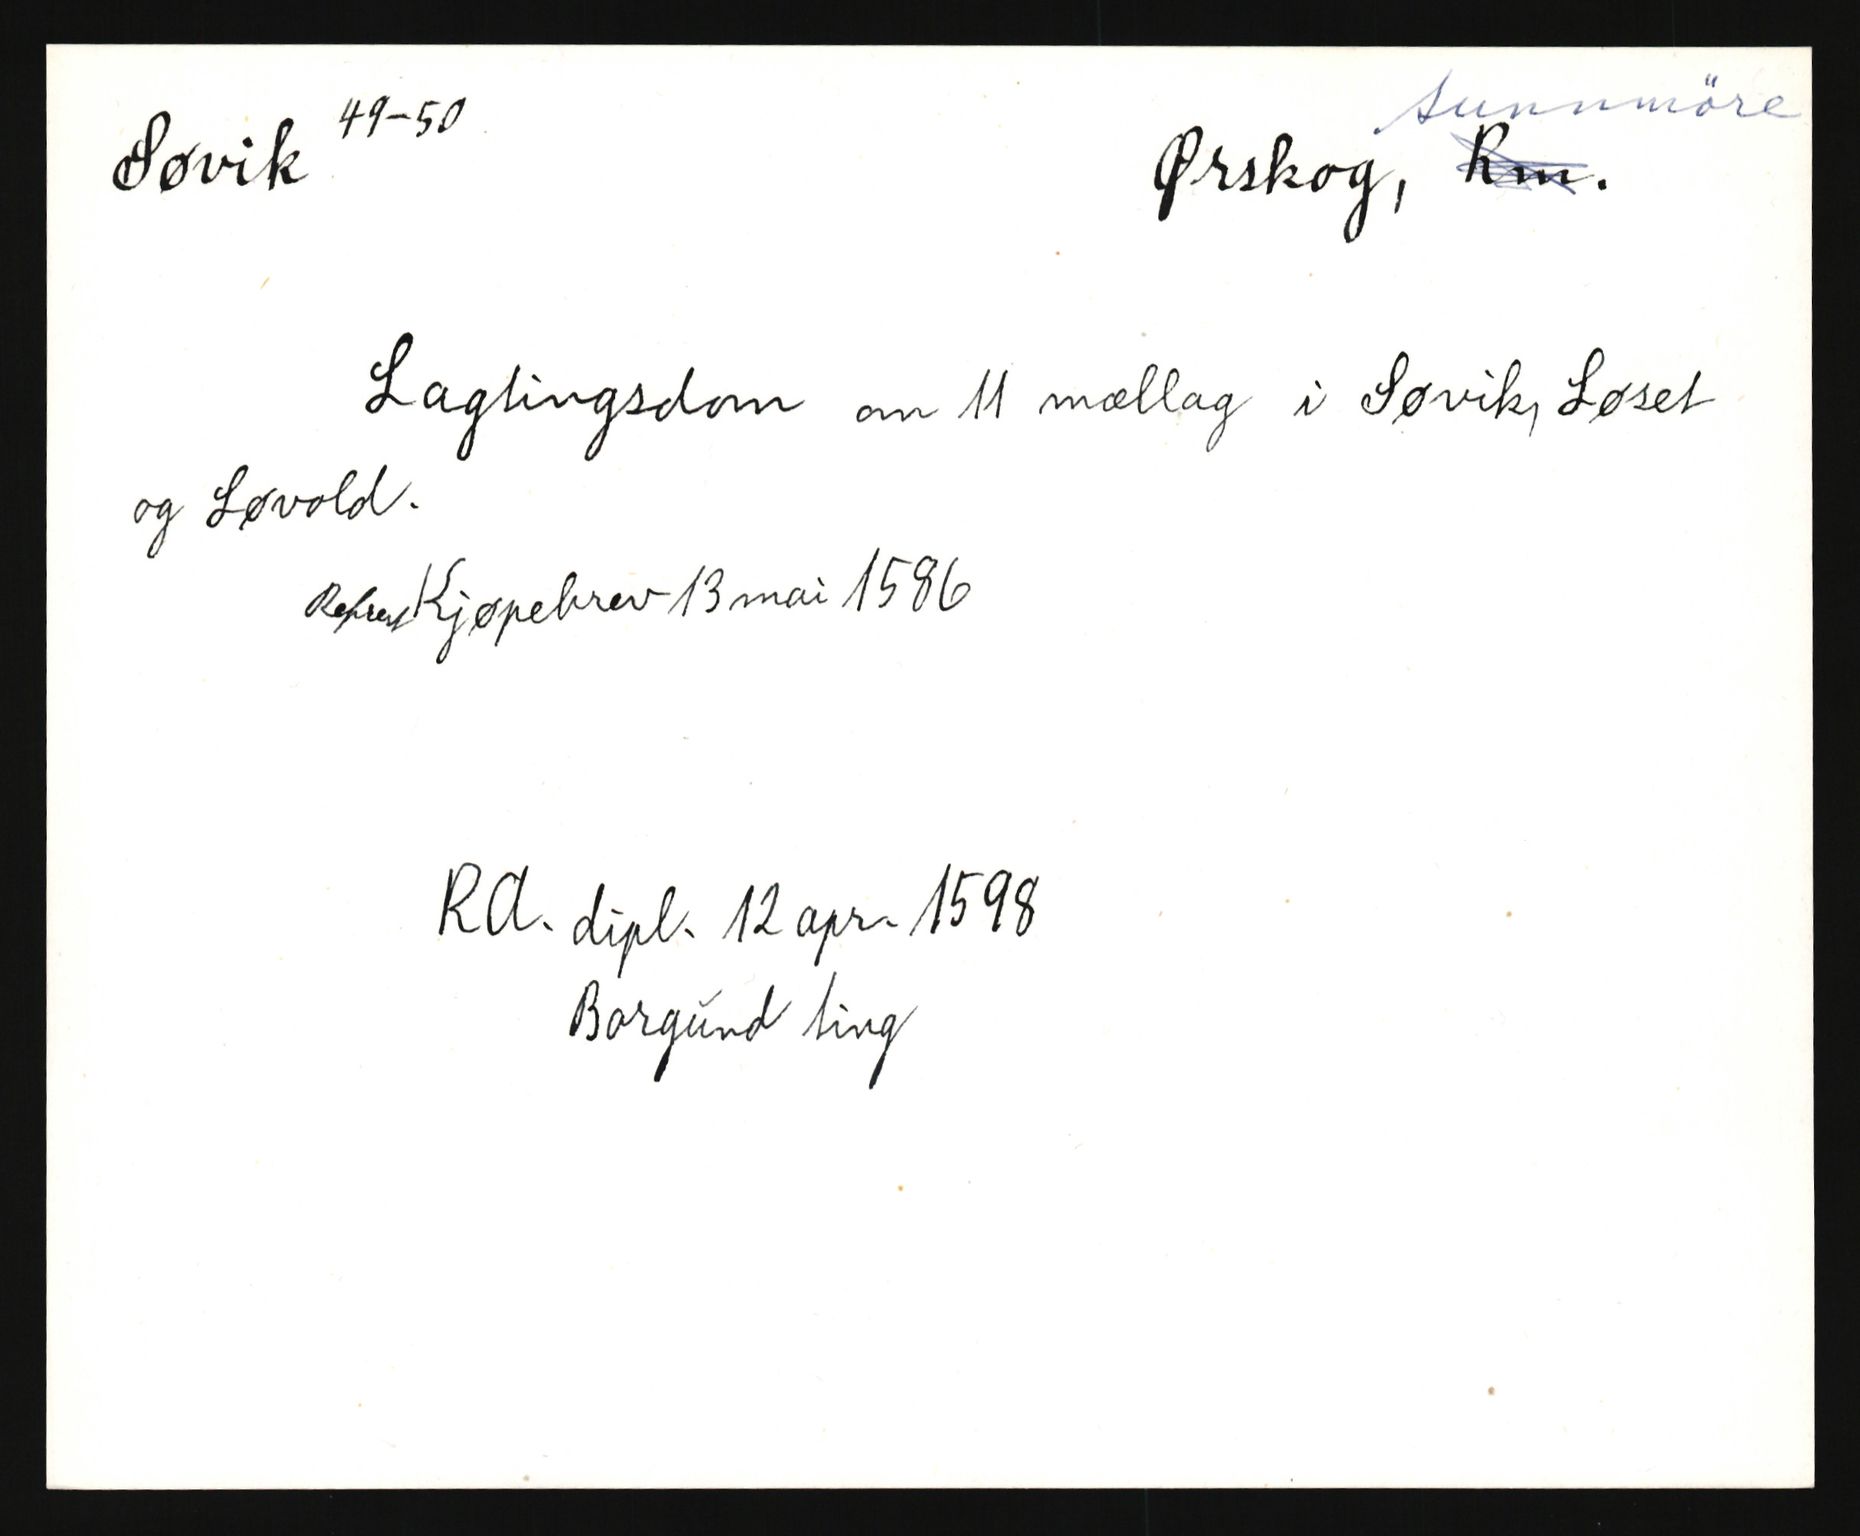 Søvik 49-50
Sunnmöre
Ørskog, Rm.
Lagtingsdom om 11 mællag i Søvik, Løset
og Løvold.
Kjøpebrev 13 mai 1586
RA. dipl. 12 apr. 1598
Borgund ting